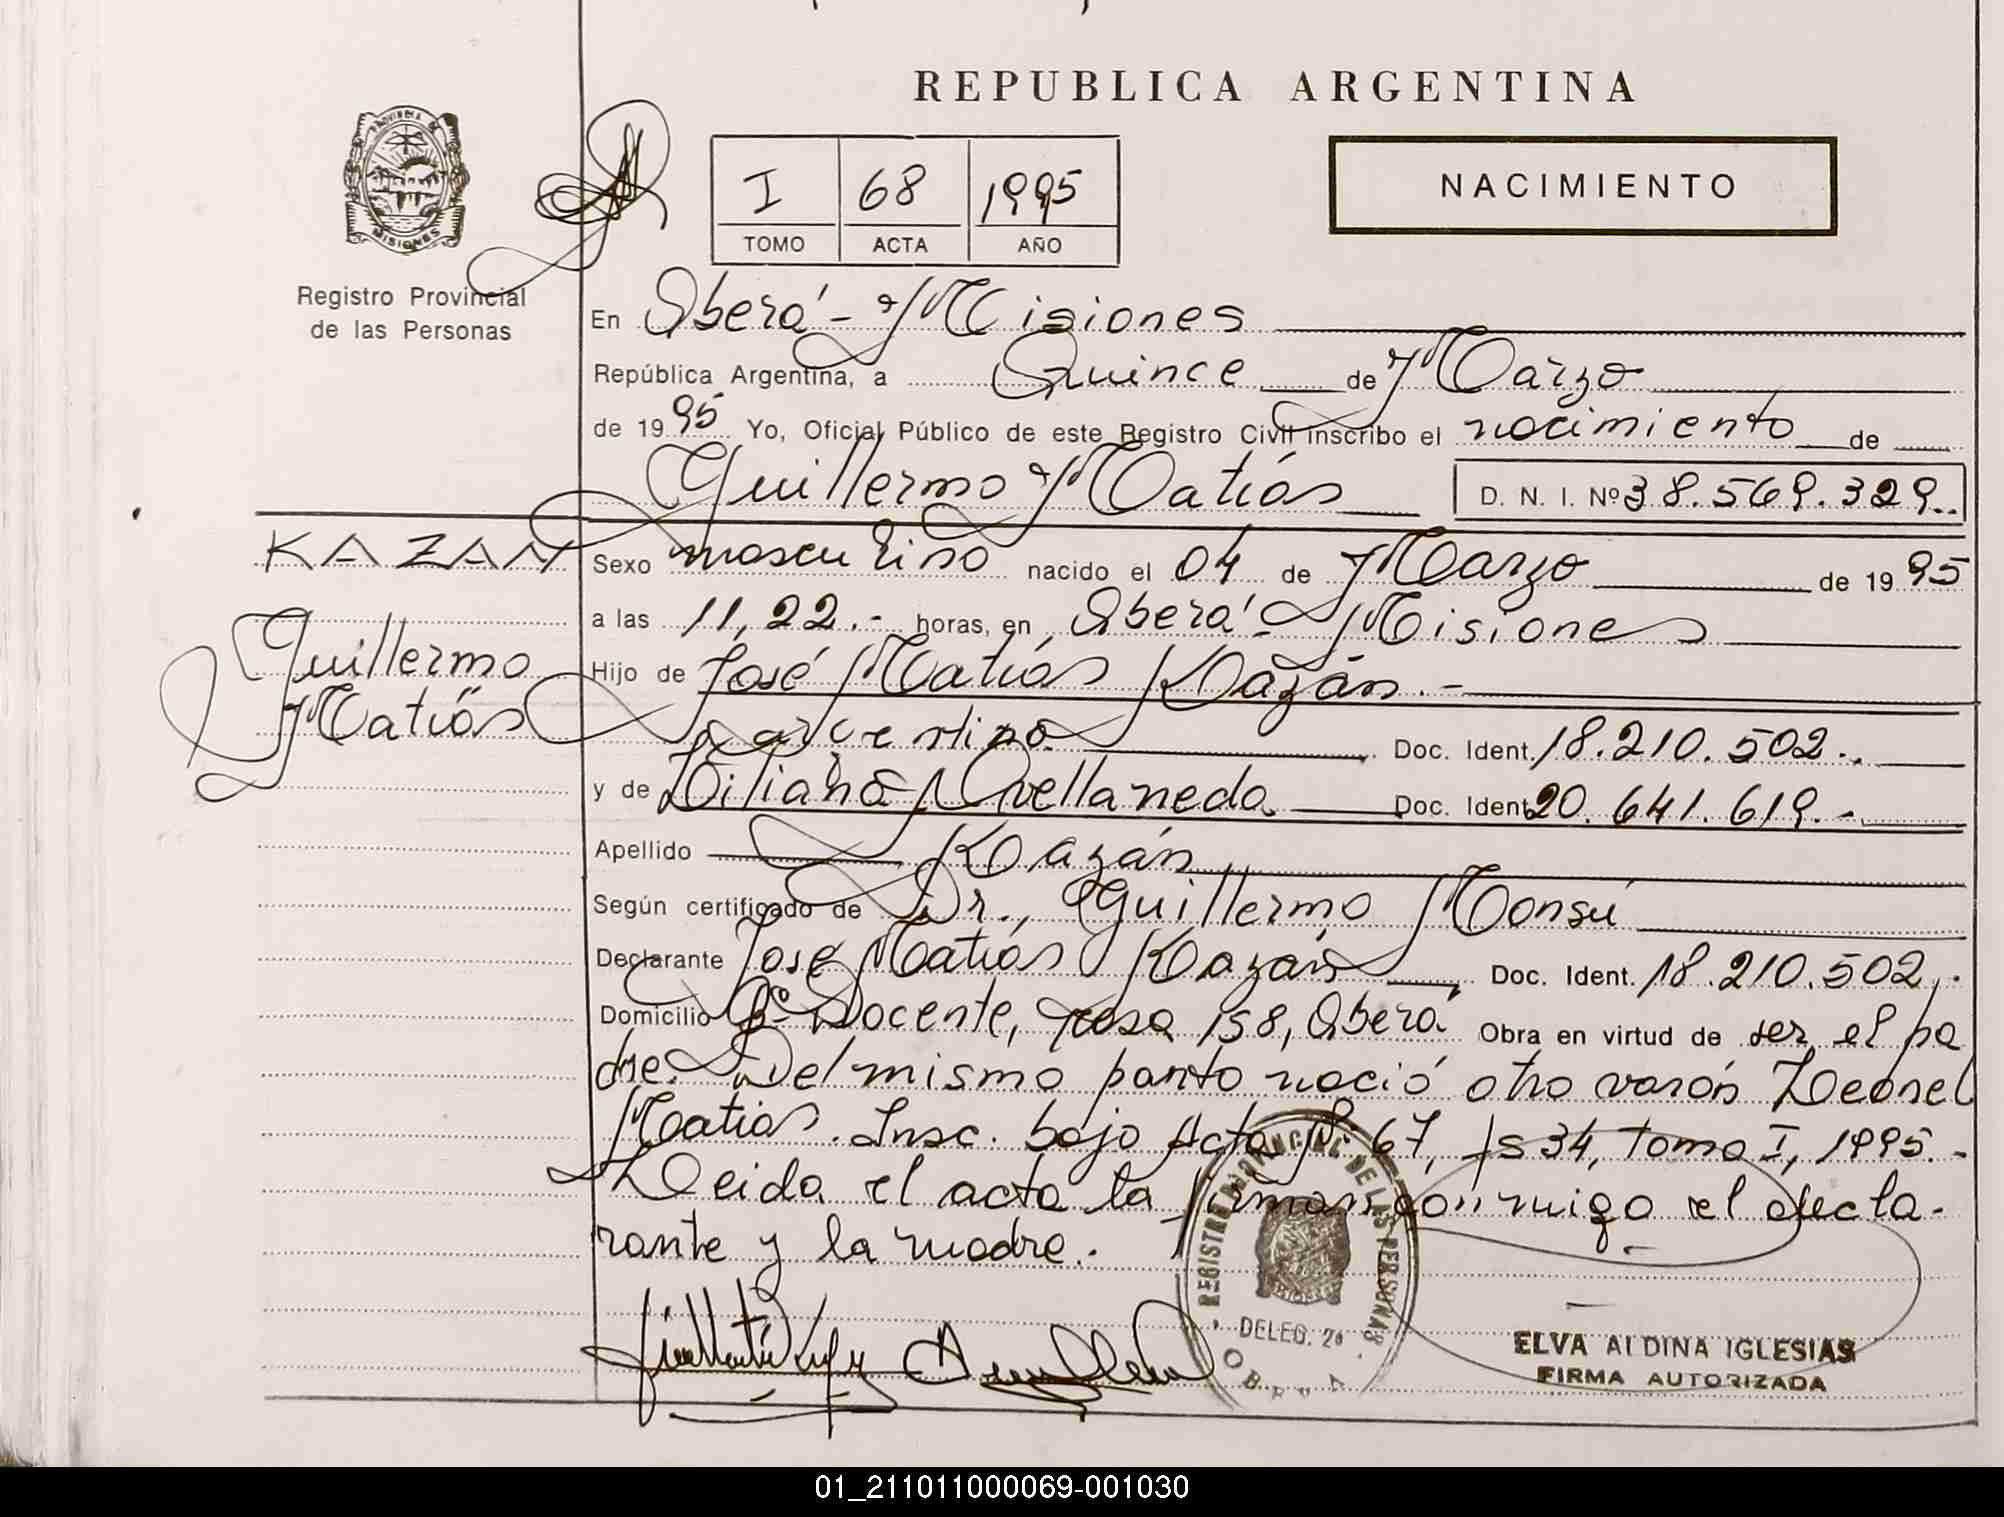 REPUBLICA ARGENTINA
PROVINCIA DE
MISIONES
Registro Provincial
de las Personas
I 68 1995
TOMO ACTA AÑO
NACIMIENTO
En Oberá - Misiones
República Argentina, a Quince de Marzo
de 1995 Yo, Oficial Público de este Registro Civil inscribo el nacimiento de
Guillermo Matías D. N. I. Nº 38.569.329..
KAZAN
Guillermo
Matías
Sexo masculino nacido el 04 de Marzo de 1995
a las 11,22.- horas, en Oberá - Misiones
Hijo de José Matías Kazán.-
argentino Doc. Ident. 18.210.502..
y de Liliana Avellaneda Doc. Ident. 20.641.619.-
Apellido Kazán
Según certificado de Dr. Guillermo Monsú
Declarante José Matías Kazán Doc. Ident. 18.210.502.
Domicilio Bº Docente, casa 158, Oberá Obra en virtud de ser el pa
dre. Del mismo parto nació otro varón Leonel
Matías. Insc. bajo Acta Nº 67, fs 34, tomo I, 1995.-
Leida el acta la firman conmigo el decla-
rante y la madre.
REGISTRO PROVINCIAL DE LAS PERSONAS
DELEG. 2ª
OBERA
ELVA ALDINA IGLESIAS
FIRMA AUTORIZADA
01_211011000069-001030